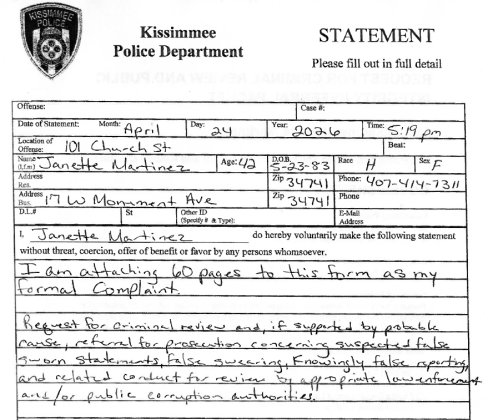 KISSIMMEE
POLICE
Kissimmee
Police Department
STATEMENT
Please fill out in full detail
Offense:
Case #:
Date of Statement: Month: April Day: 24 Year: 2026 Time: 5:19 pm
Location of Offense: 101 Church St
Beat:
Name (l,f,m) Janette Martinez Age: 42 D.O.B. 5-23-83 Race H Sex F
Address Res. Zip 34741 Phone: 407-414-7311
Address Bus. 17 W Monument Ave Zip 34741 Phone
D.L.# St Other ID (Specify # & Type): E-Mail Address
I, Janette Martinez do hereby voluntarily make the following statement
without threat, coercion, offer of benefit or favor by any persons whomsoever.
I am attaching 60 pages to this form as my
formal Complaint.
Request for criminal review and, if supported by probable
cause, referral for prosecution concerning suspected false
sworn statements, false swearing, Knowingly false reporting,
and related conduct for review by appropriate law enforcement
and/or public corruption authorities.